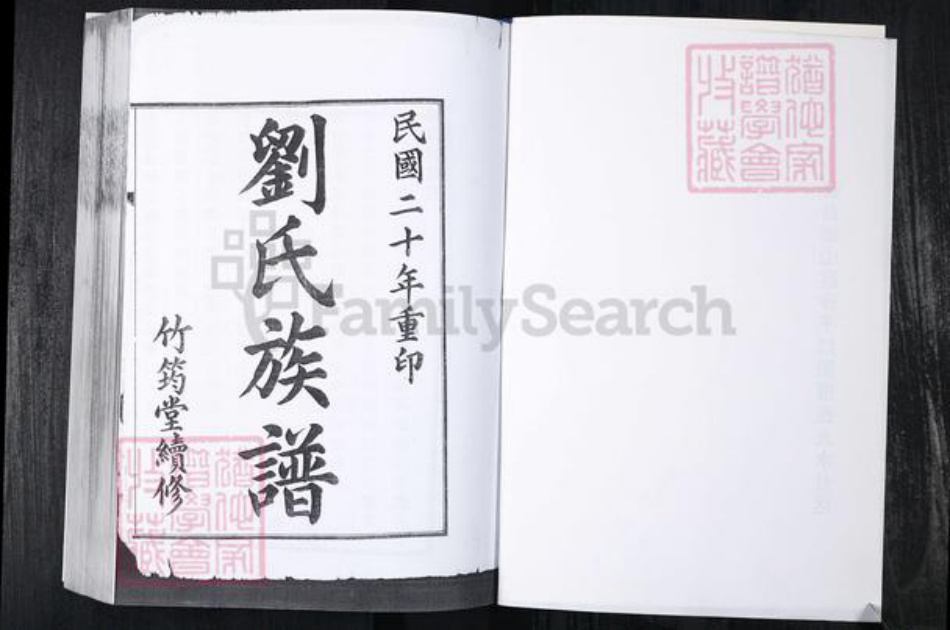 民國二十年重印
劉氏族譜
竹筠堂續修
FamilySearch
猶他家
譜學會
收藏
猶他家
譜學會
收藏